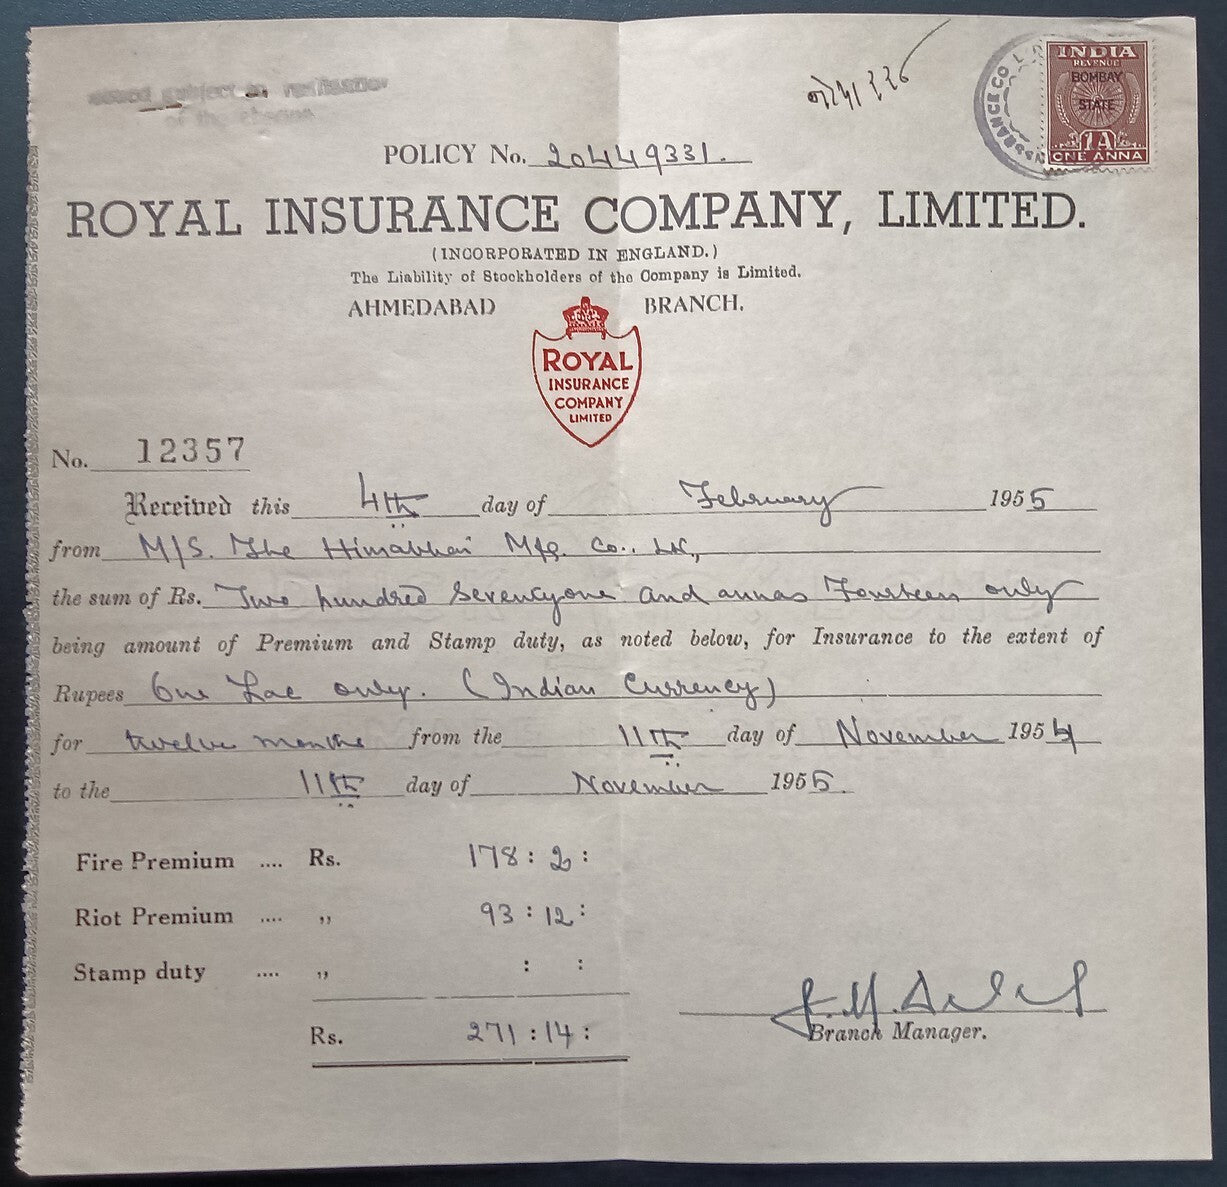 issued subject to realisation
of the cheque
INDIA
REVENUE
BOMBAY
STATE
1A
ONE ANNA
POLICY No. 20449331.
ROYAL INSURANCE COMPANY, LIMITED.
(INCORPORATED IN ENGLAND.)
The Liability of Stockholders of the Company is Limited.
AHMEDABAD BRANCH.
ROYAL
INSURANCE
COMPANY
LIMITED
No. 12357
Received this 4th day of February 1955
from M/S. The Himabhai Mfg. Co., Ld.,
the sum of Rs. Two hundred Seventyone and annas Fourteen only
being amount of Premium and Stamp duty, as noted below, for Insurance to the extent of
Rupees One Lac only. (Indian Currency)
for twelve months from the 11th day of November 1954
to the 11th day of November 1955.
Fire Premium .... Rs. 178 : 2 :
Riot Premium .... ,, 93 : 12 :
Stamp duty .... ,, : :
Rs. 271 : 14 :
Branch Manager.